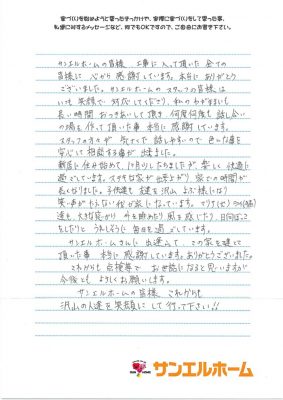 家づくりを始めようと思ったきっかけや、実際に家づくりをして思った事、
私達に対するメッセージなど、何でもOKですので、ご自由にお書き下さい。
サンエルホームの皆様 工事に入って頂いた全ての
皆様に 心から感謝しています。本当にありがとう
ございました。サンエルホームのスタッフの皆様は
いつも 笑顔で 対応してくださり、私のわがままにも
長い時間 おつきあいして頂き 何度何度も 話し合い
の場を作って頂いた事 本当に 感謝しています。
スタッフの方々が 気さくで 話しやすいので 色々な事を
安心して相談する事が 出来ました。
新居に住み始めて 1ヶ月ちょっとたちましたが 楽しく 快適に
過ごしています。ステキな家が出来上がり 家での時間が
長くなりました。子供達も 友達を 沢山 よぶ様になり
笑い声が たえない位の家に なっています。
達も 大きな窓から 外を眺めたり 風を感じたり、日向ぼっこ
をしたりと うれしそうに 毎日を過ごしています。
サンエルホームさんに 出逢えて、この家を建てて
頂いた事 本当に感謝しています。ありがとうございました。
これからも 点検等で お世話になると思いますが
今後とも よろしくお願いします。
サンエルホームの皆様 これからも
沢山の人達を 笑顔に して 行って下さい!!
サンエルホーム